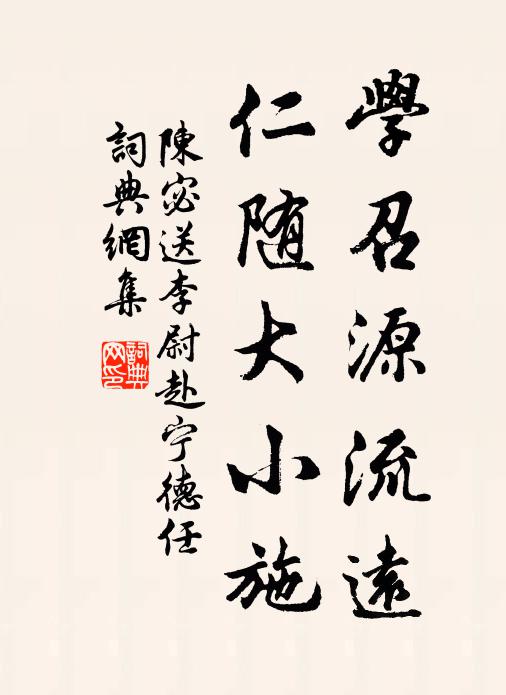 學召源流遠
仁随大小施
陳宓送李尉赴宁德任
詞典網集
詞典
网印